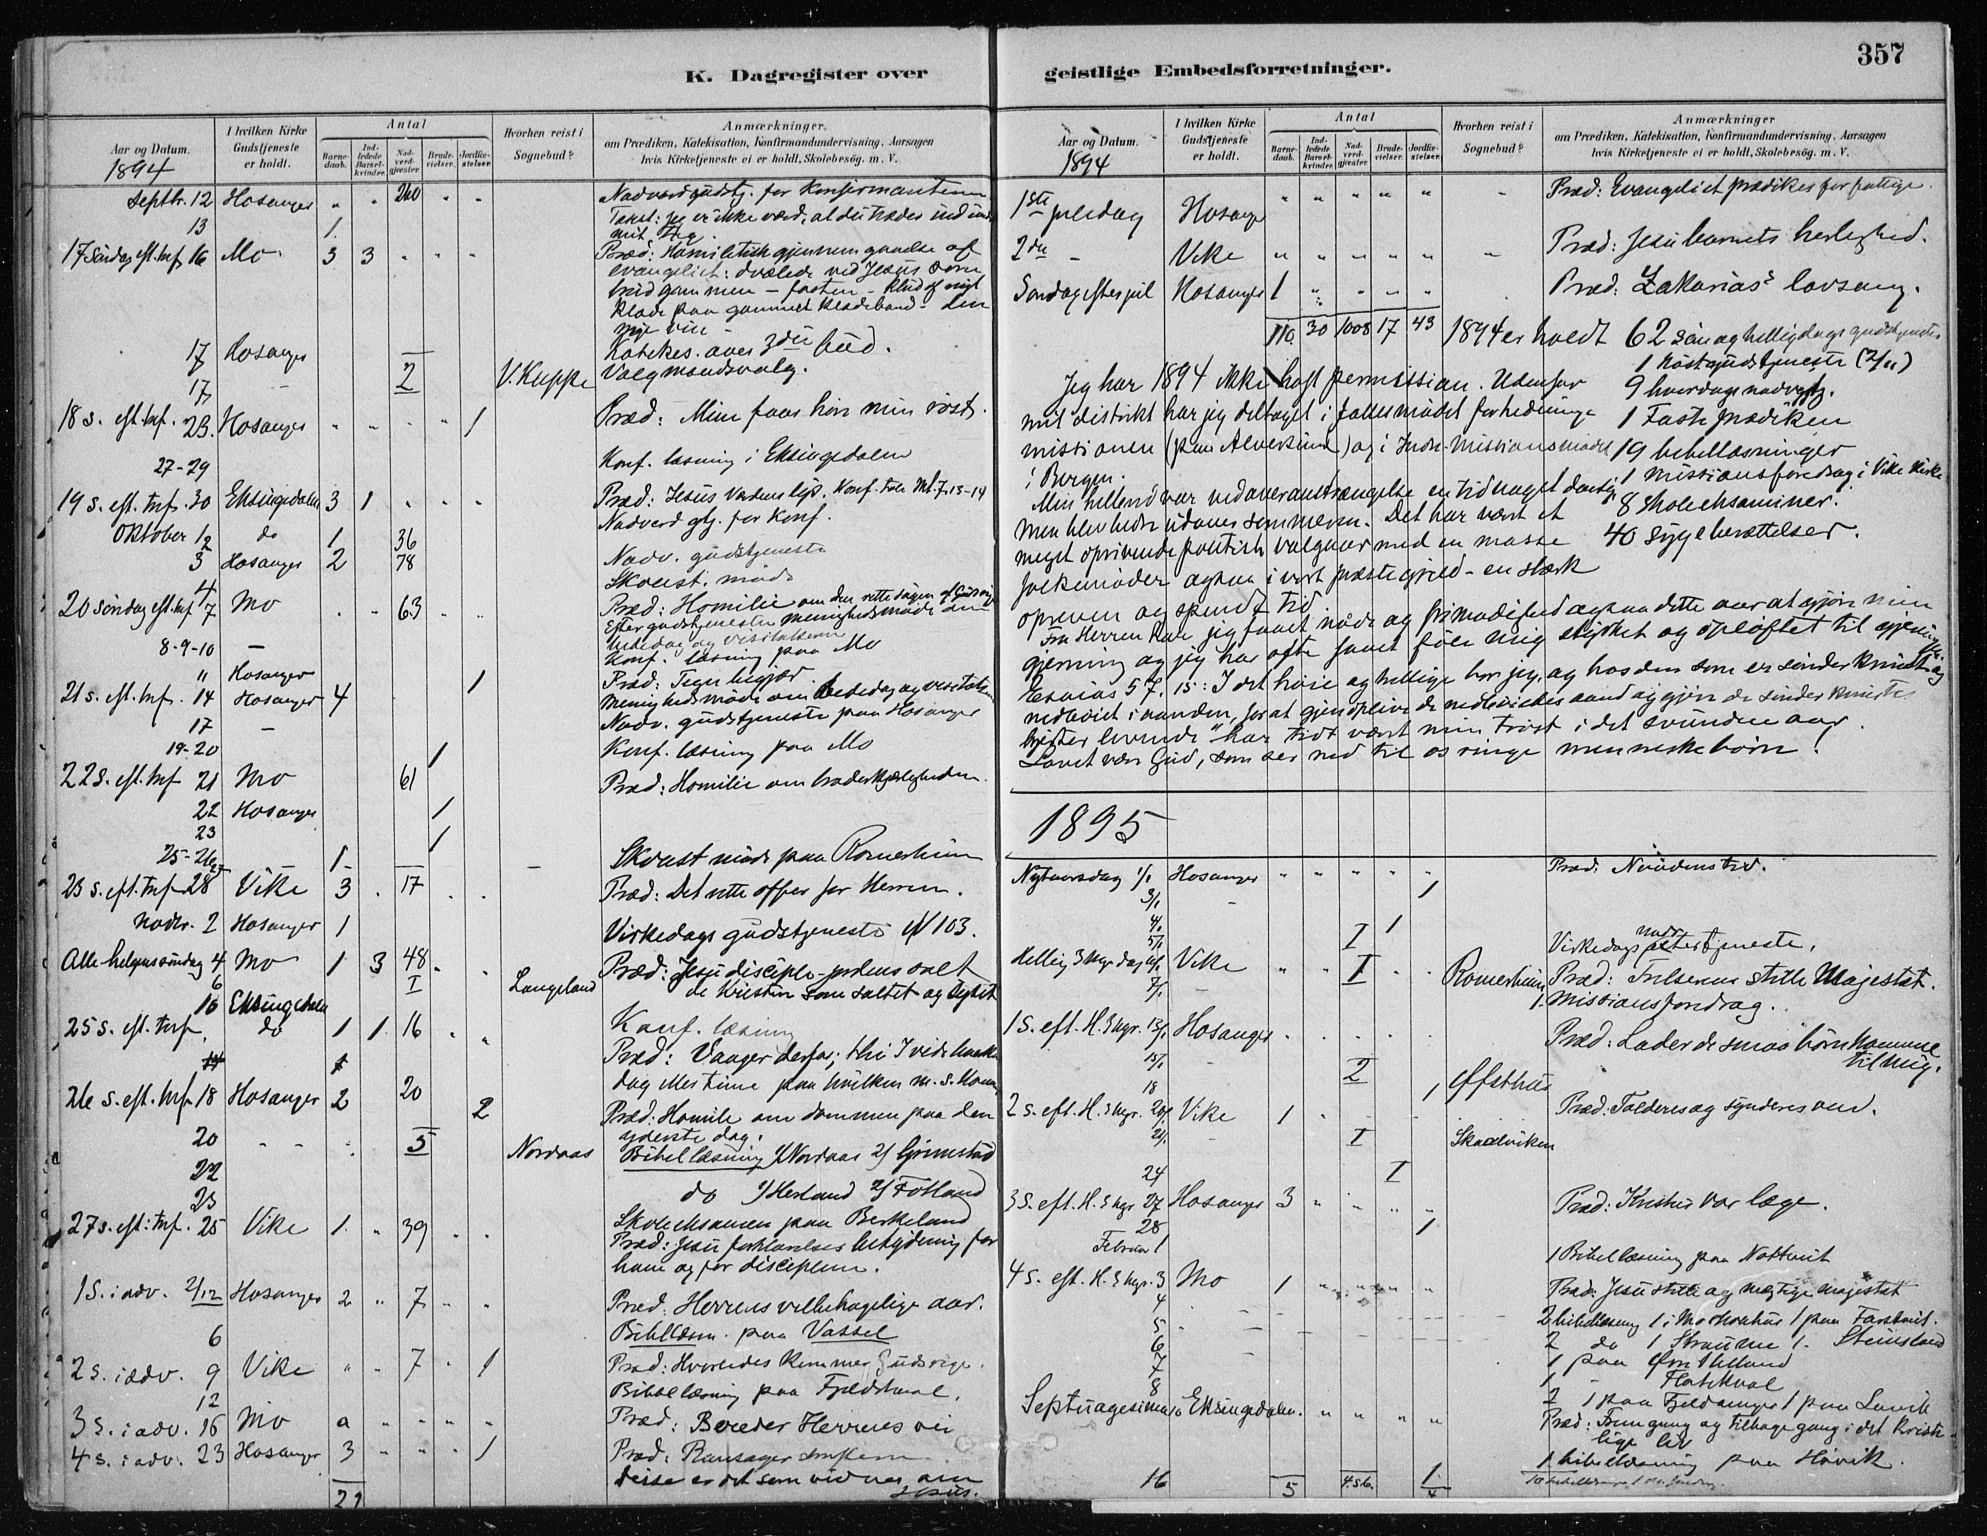 357
K. Dagregister over
Aar og Datum.
1894
I hvilken Kirke Gudstjeneste er holdt.
Antal
Barnedaab.
Indledede Barselkvinder.
Nadverdgjæster.
Brudevielser.
Jordfæstelser.
Hvorhen reist i Sognebud?
Anmærkninger.
om Prædiken, Katekisation, Konfirmandundervisning, Aarsagen
hvis Kirketjeneste ei er holdt, Skolebesøg. m. V.
Septbr. 12 Hosanger " " 260 " " Nadverdgudstj. for Konfirmanterne
Tekst: jeg er ikke værd, at du træder ind under
13 1. mit Tag.
17 Søndag eft. tref. 16 Mo 3 3 " " " Præd: Homiletisk gjennemgaaelse af
evangeliet: dvælede ved Jesus som
brudgommen - fasten - klud af nyt
klæde paa gammelt klædebond - den
nye vin
17 Hosanger Katekes. over 3die bud.
17 - 2 V. Kuppe Valgmandsvalg.
18 s. eft. tref. 23. Hosanger " " " " 1 Præd: Mine faar hør min røst.
27-29 Konf. læsning i Eksingedalen
19 s. eft. tref. 30 Eksingedalen 3 1 " " " Præd: Jesus Verdens lys. Konf. tale Mt. 7. 13-14
Oktober 1/2 do 1 36 Nadverd gtj. for Konf.
3 Hosanger 2 78 Nadv. gudstjeneste
4 Skolest. møde
20 søndag eft. tref 7 Mo " " 63 " " Præd: Homilie om den rette dagen
Efter gudstjenesten menighedsmøde om
bededag og visitatsen
8-9-10 - Konf. læsning paa Mo
11 Hosanger 1
21 s. eft. tref. 14 Hosanger 4 Præd:
Menighedsmøde om bededag og visitatsen
17 - Nadv. gudstjeneste paa Hosanger
19-20 1 Konf. læsning paa Mo
22 s. eft. tref 21 Mo 61 Præd: Homilie om broderkjærligheden.
22 Hosanger 1
23 1
25-26 1 Skolest møde paa Romerheim
23 s. eft. tref 28 Vike 3 " 17 " " Præd: Det rette offer for Herren.
Novbr. 2 Hosanger 1 Virkedags gudstjeneste 103.
Alle helgens søndag 4 Mo 1 3 48 " " Præd: Jesu disciple - jordens salt
6 1 Langeland de kristne som saltet og lyset
10 Eksingedalen Konf. læsning
25 s. eft. tref. do 1 1 16 " " Præd: Vaager derfor, thi I vide hverken
dag eller time paa hvilken m. s. kommer
26 s. eft. tref 18 Hosanger 2 20 2 Præd: Homilie om dommen paa den
yderste dag.
20 - - " 5 Nordaas Bibellæsning 1/ Nordaas 2/ Grimestad
22 do 1/ Herland 2/ Fotland
23 Skoleeksamen paa Birkeland
27 s. eft. tref. 25 Vike 1. " 39 " " Præd: Jesu forklarelses betydning for
ham og for disciplene.
1 S. i adv. 2/12 Hosanger 2 " 7 " " Præd. Herrens velbehagelige aar.
6 Bibellæsn. paa Vassel
2 s. i adv. 9 Vike " " 7 " 1 Præd: Hvorledes kommer Guds rige.
12 Bibellæsning paa Fjeldskaal.
3 s. i adv. 16 Mo " " " " " Præd: Bereder Herrens vei
4 s. i adv. 23 Hosanger 3 " " " 1 Præd: Ransager skriften
disse er det som vidner om
29 Jesus.
geistlige Embedsforretninger.
Aar og Datum.
1894
I hvilken Kirke Gudstjeneste er holdt.
Antal
Barnedaab.
Indledede Barselkvinder.
Nadverdgjæster.
Brudevielser.
Jordfæstelser.
Hvorhen reist i Sognebud?
Anmærkninger
om Prædiken, Katekisation, Konfirmandundervisning, Aarsagen
hvis Kirketjeneste ei er holdt, Skolebesøg. m. V.
1ste juledag Hosanger " " " " " " Præd: Evangeliet prædikes for fattige.
2den - Vike " " " " " " Præd: Jesubarnets herlighed.
Søndag efter jul Hosanger 1 " " " " Præd: Zakarias's lovsang.
110 30 1008 17 43 1894 er holdt 62 søn og helligdags gudstjenester
1 høstgudstjeneste (2/11)
Jeg har 1894 ikke haft permission. Udenfor 9 hverdags nadvgtj.
mit distrikt har jeg deltaget i fællesmødet for hedninge 1 Faste prædiken
missionen (paa Alversund) og i Indre-Missionsmødet 19 bibellæsninger
i Bergen. 1 missionsforedrag i Vike kirke
Min helbred var ved overanstrængelse en tid noget daarlig, 8 skoleeksaminer.
men blev bedre udover sommeren. Det har været et 40 sygeberættelser.
meget oprivende politisk valgaar med en masse
folkemøder ogsaa i vort præstegjeld - en stærk
opreven og spændt tid
Fra Herren har jeg faaet naade og frimodighed ogsaa dette aar at gjøre min
gjerning og jeg har ofte faaet føle mig styrket og opløftet til gjerning.
Esaias 57. 15: I det høie og hellige bor jeg, og hos den som er sønderknust og
nedbøiet i aanden, for at gjenoplive de nedbøiedes aand og gjøre de sønderknustes
hjerter levende" har tidt været min trøst i det svundne aar.
Lovet være Gud, som ser ned til os ringe menneskebørn!
1895
Nytaarsdag 1/1 Hosanger " " " " " Præd. Naadens tid.
3/1 - 1
4/1 1
5/1 1 Virkedags nadv tjeneste.
Hellig 3 kgr dag 6/1 Vike " " 1 " " Romerheim Præd: Frelserens stille Majestæt.
7/1 - 1. Missionsforedrag.
1 s. eft. H. 3 kgr. 13/1 Hosanger " " " " " Præd: Lader de smaa børn komme
til mig.
15/1 - 2
18 1 Øfsthus
2 s. eft. H. 3 kgr. 20/1 Vike 1 " " " " Præd: Tolderes og synderes ven.
21/1 - 1 Skadviken
24 1
3 s. eft. H. 3 kgr 27 Hosanger 3 " " " " Præd: Kristus vor læge.
28 1
Februar 1 1 Bibellæsning paa Nottveit
4 s. eft. H. 3 kgr. 3 Mo 1 " " " " Præd: Jesu stille og mægtige majestæt
4 2 bibellæsning 1 i Mo skolehus 1 paa Farestveit.
5 2 do 1 Straume 1. Steinsland
6 1 paa Øvre Helland
7 1 - Flatekval
8 2 1 paa Fjeldanger 1 paa Lavik
Septuagesima 10 Eksingedalen. " " " " Præd: Fremgang og tilbagegang i det kriste-
lige liv
16 1 1 bibellæsning paa Høvik.
5 456 4